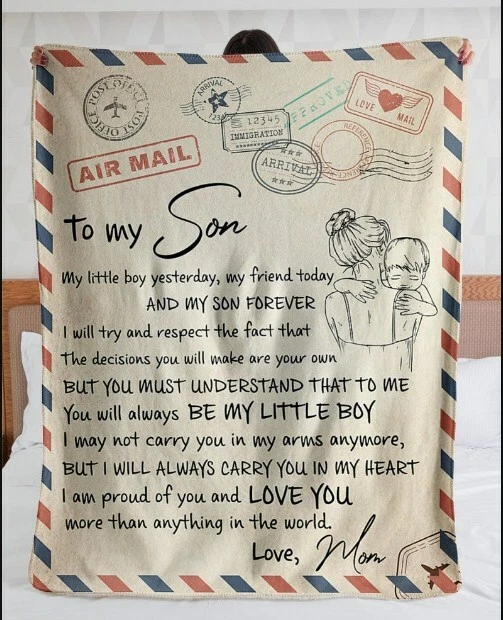 POST OFFICE POST OFFICE
ARRIVAL
12345
IMMIGRATION
LOVE MAIL
AIR MAIL
ARRIVAL
To my Son
My little boy yesterday, my friend today
AND MY SON FOREVER
I will try and respect the fact that
The decisions you will make are your own
BUT YOU MUST UNDERSTAND THAT TO ME
You will always BE MY LITTLE BOY
I may not carry you in my arms anymore,
BUT I WILL ALWAYS CARRY YOU IN MY HEART
I am proud of you and LOVE YOU
more than anything in the world.
Love, Mom